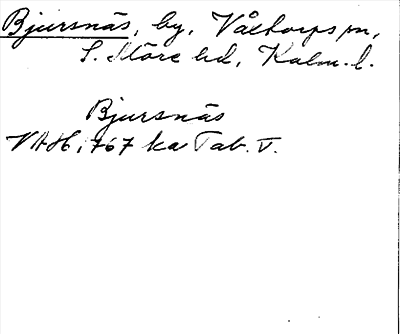 Bjursnäs, by, Våthorps sn,
S. Möre hd, Kalm. l.
Bjursnäs
VAH, 1767 ka Tab. V.